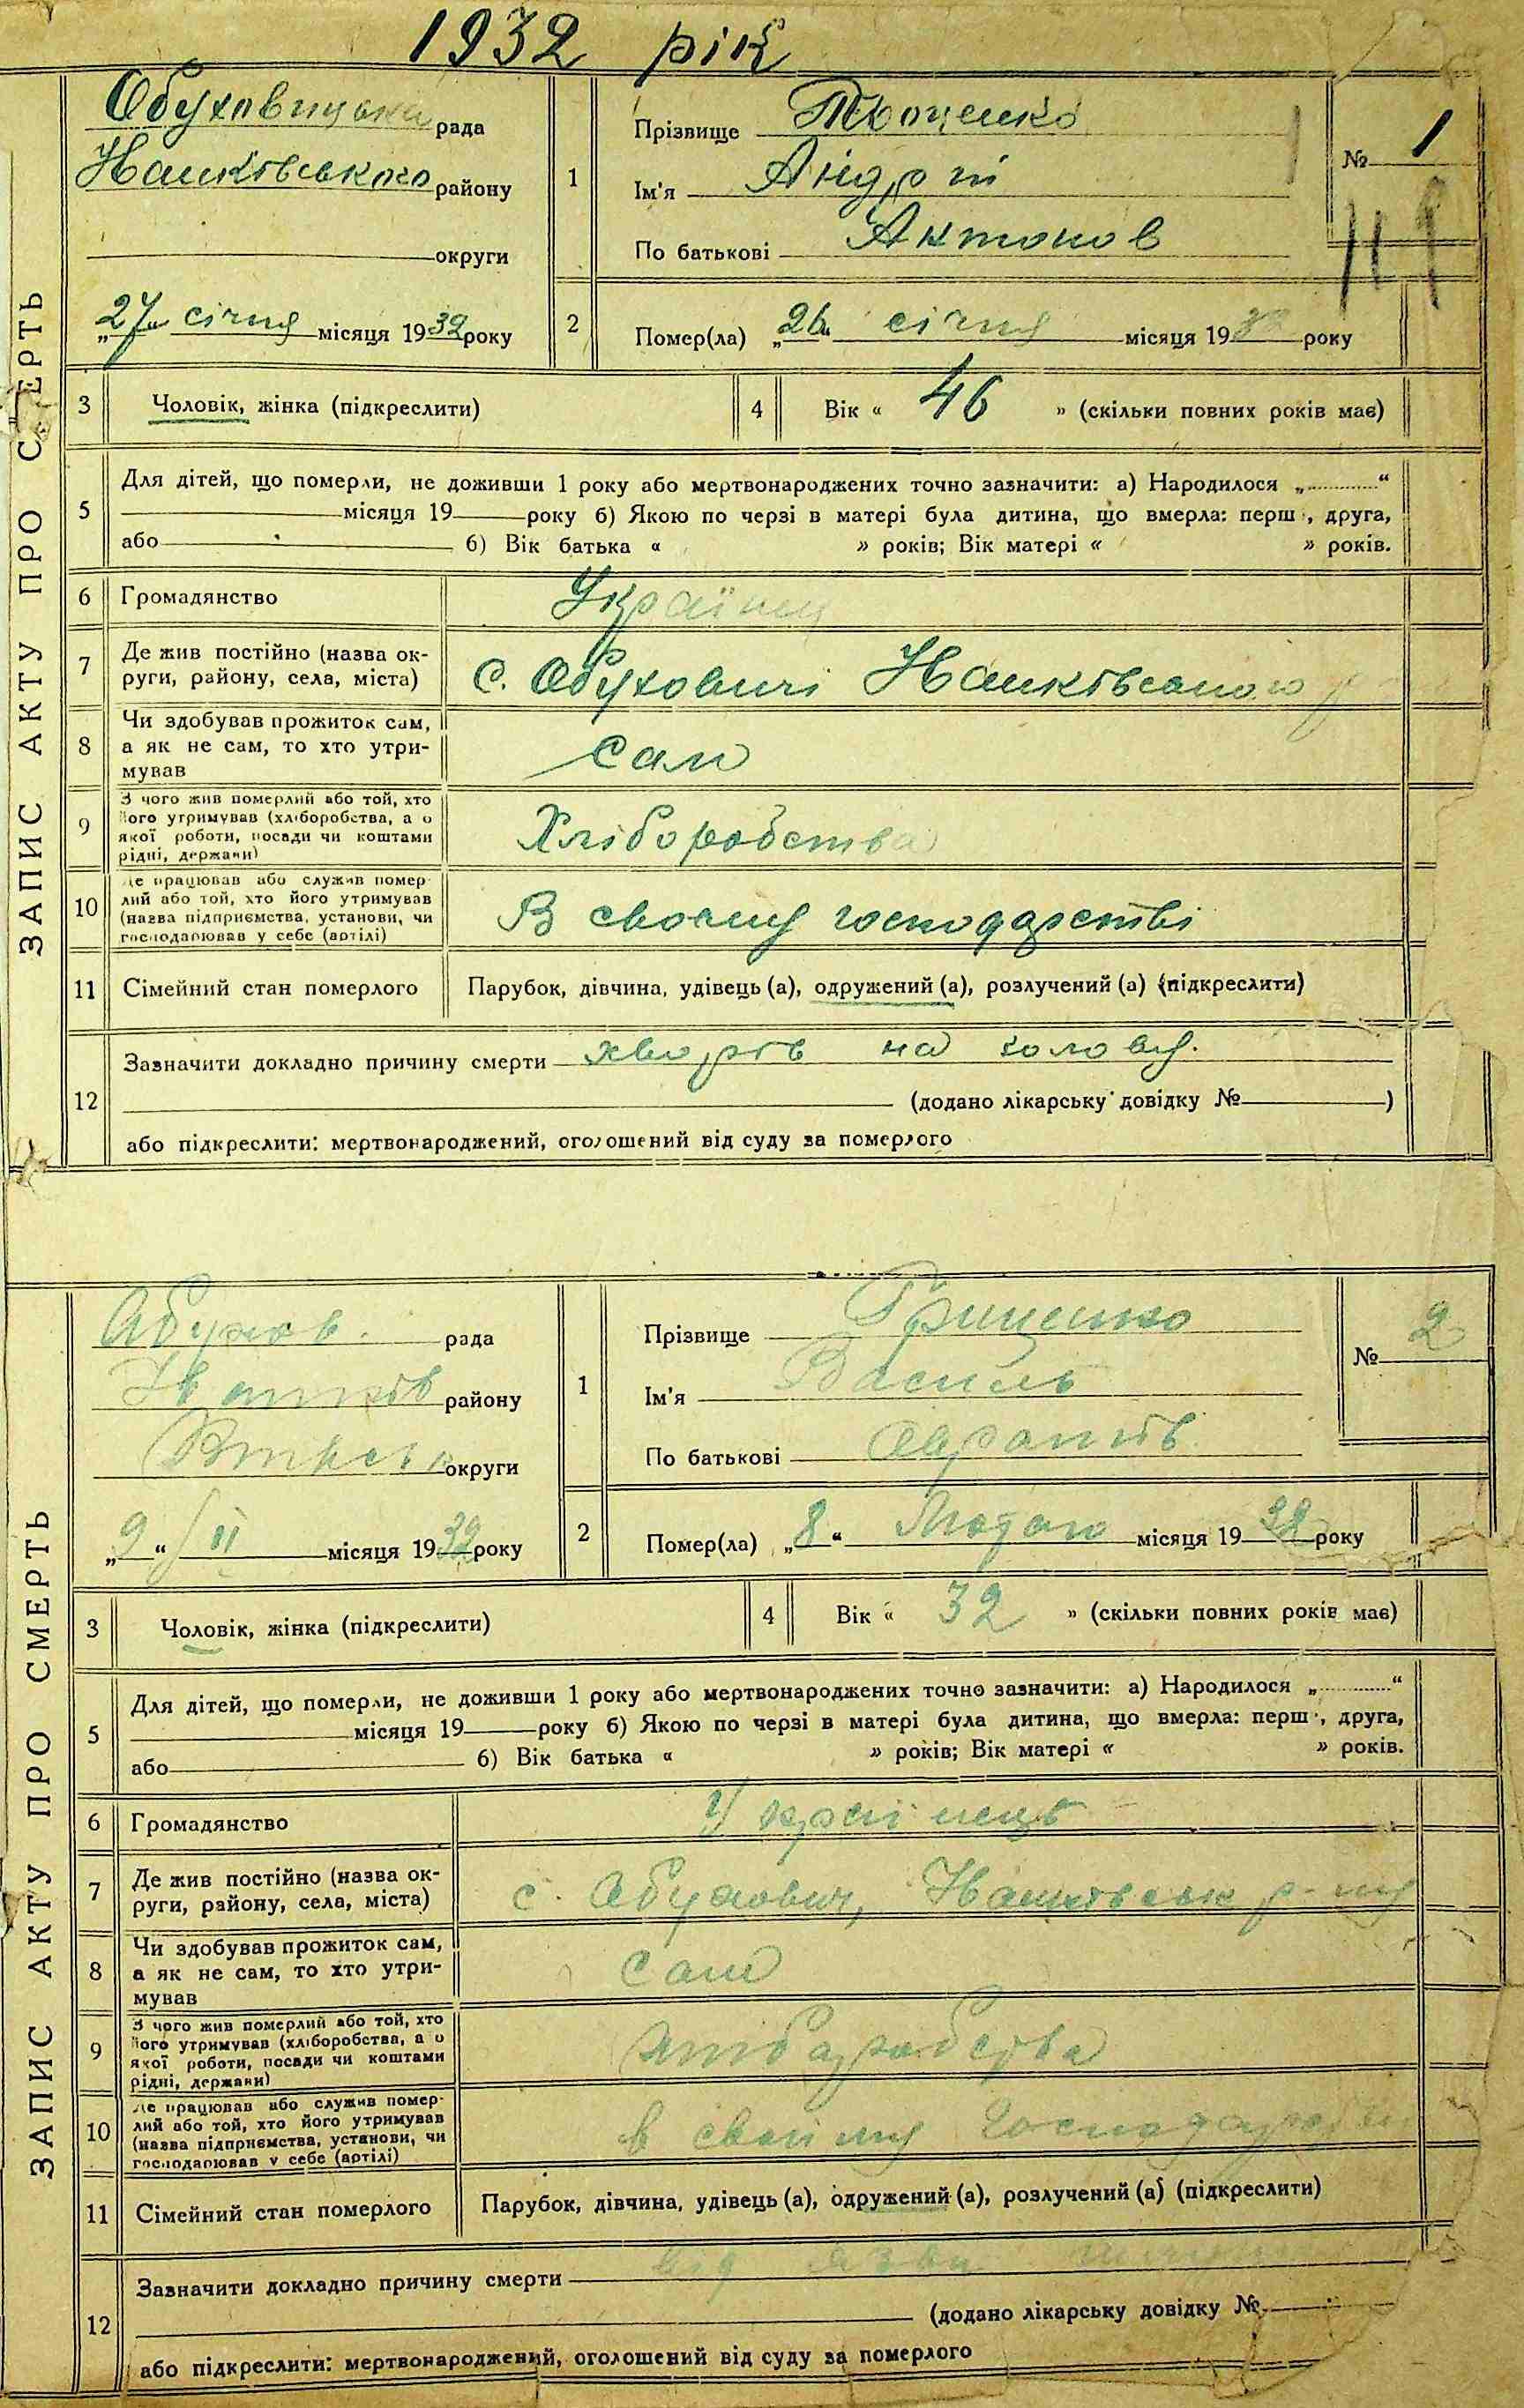 1932 рік
ЗАПИС АКТУ ПРО СМЕРТЬ
Обуховицька рада
району
округи
„27“ січня місяця 1932 року
1
Прізвище
Ім'я Андрій
По батькові Антонов
№ 1
2
Помер(ла) „26“ січня місяця 1932 року
3 Чоловік, жінка (підкреслити)
4 Вік « 46 » (скільки повних років має)
5 Для дітей, що померли, не доживши 1 року або мертвонароджених точно зазначити: а) Народилося „ “
місяця 19 року б) Якою по черзі в матері була дитина, що вмерла: перш , друга,
або б) Вік батька « » років; Вік матері « » років.
6 Громадянство Українец
7 Де жив постійно (назва ок-
руги, району, села, міста) с. Обуховичі
8 Чи здобував прожиток сам,
а як не сам, то хто утри-
мував сам
9 З чого жив померлий або той, хто
його утримував (хліборобства, а о
якої роботи, посади чи коштами
рідні, держави) Хліборобства
10 Де працював або служив помер-
лий або той, хто його утримував
(назва підприємства, установи, чи
господарював у себе (артілі) В своєму господарстві
11 Сімейний стан померлого Парубок, дівчина, удівець (а), одружений (а), розлучений (а) (підкреслити)
12 Зазначити докладно причину смерти хворів на голову.
(додано лікарську довідку № )
або підкреслити: мертвонароджений, оголошений від суду за померлого
ЗАПИС АКТУ ПРО СМЕРТЬ
Абухов. рада
району
округи
„9“ II місяця 1932 року
1
Прізвище Гриценко
Ім'я Василь
По батькові
№ 2
2
Помер(ла) „8“ Лютого місяця 1932 року
3 Чоловік, жінка (підкреслити)
4 Вік « 32 » (скільки повних років має)
5 Для дітей, що померли, не доживши 1 року або мертвонароджених точно зазначити: а) Народилося „ “
місяця 19 року б) Якою по черзі в матері була дитина, що вмерла: перш , друга,
або б) Вік батька « » років; Вік матері « » років.
6 Громадянство Українець
7 Де жив постійно (назва ок-
руги, району, села, міста) с. Абухович, р-ну
8 Чи здобував прожиток сам,
а як не сам, то хто утри-
мував сам
9 З чого жив померлий або той, хто
його утримував (хліборобства, а о
якої роботи, посади чи коштами
рідні, держави)
10 Де працював або служив помер-
лий або той, хто його утримував
(назва підприємства, установи, чи
господарював у себе (артілі) в
11 Сімейний стан померлого Парубок, дівчина, удівець (а), одружений (а), розлучений (а) (підкреслити)
12 Зазначити докладно причину смерти від язви
(додано лікарську довідку №
або підкреслити: мертвонароджений, оголошений від суду за померлого